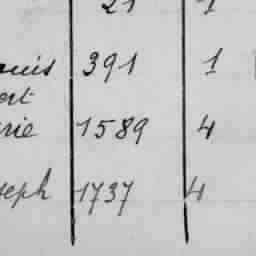 21 1
ouis 391 1
ert
rie 1589 4
seph 1737 4